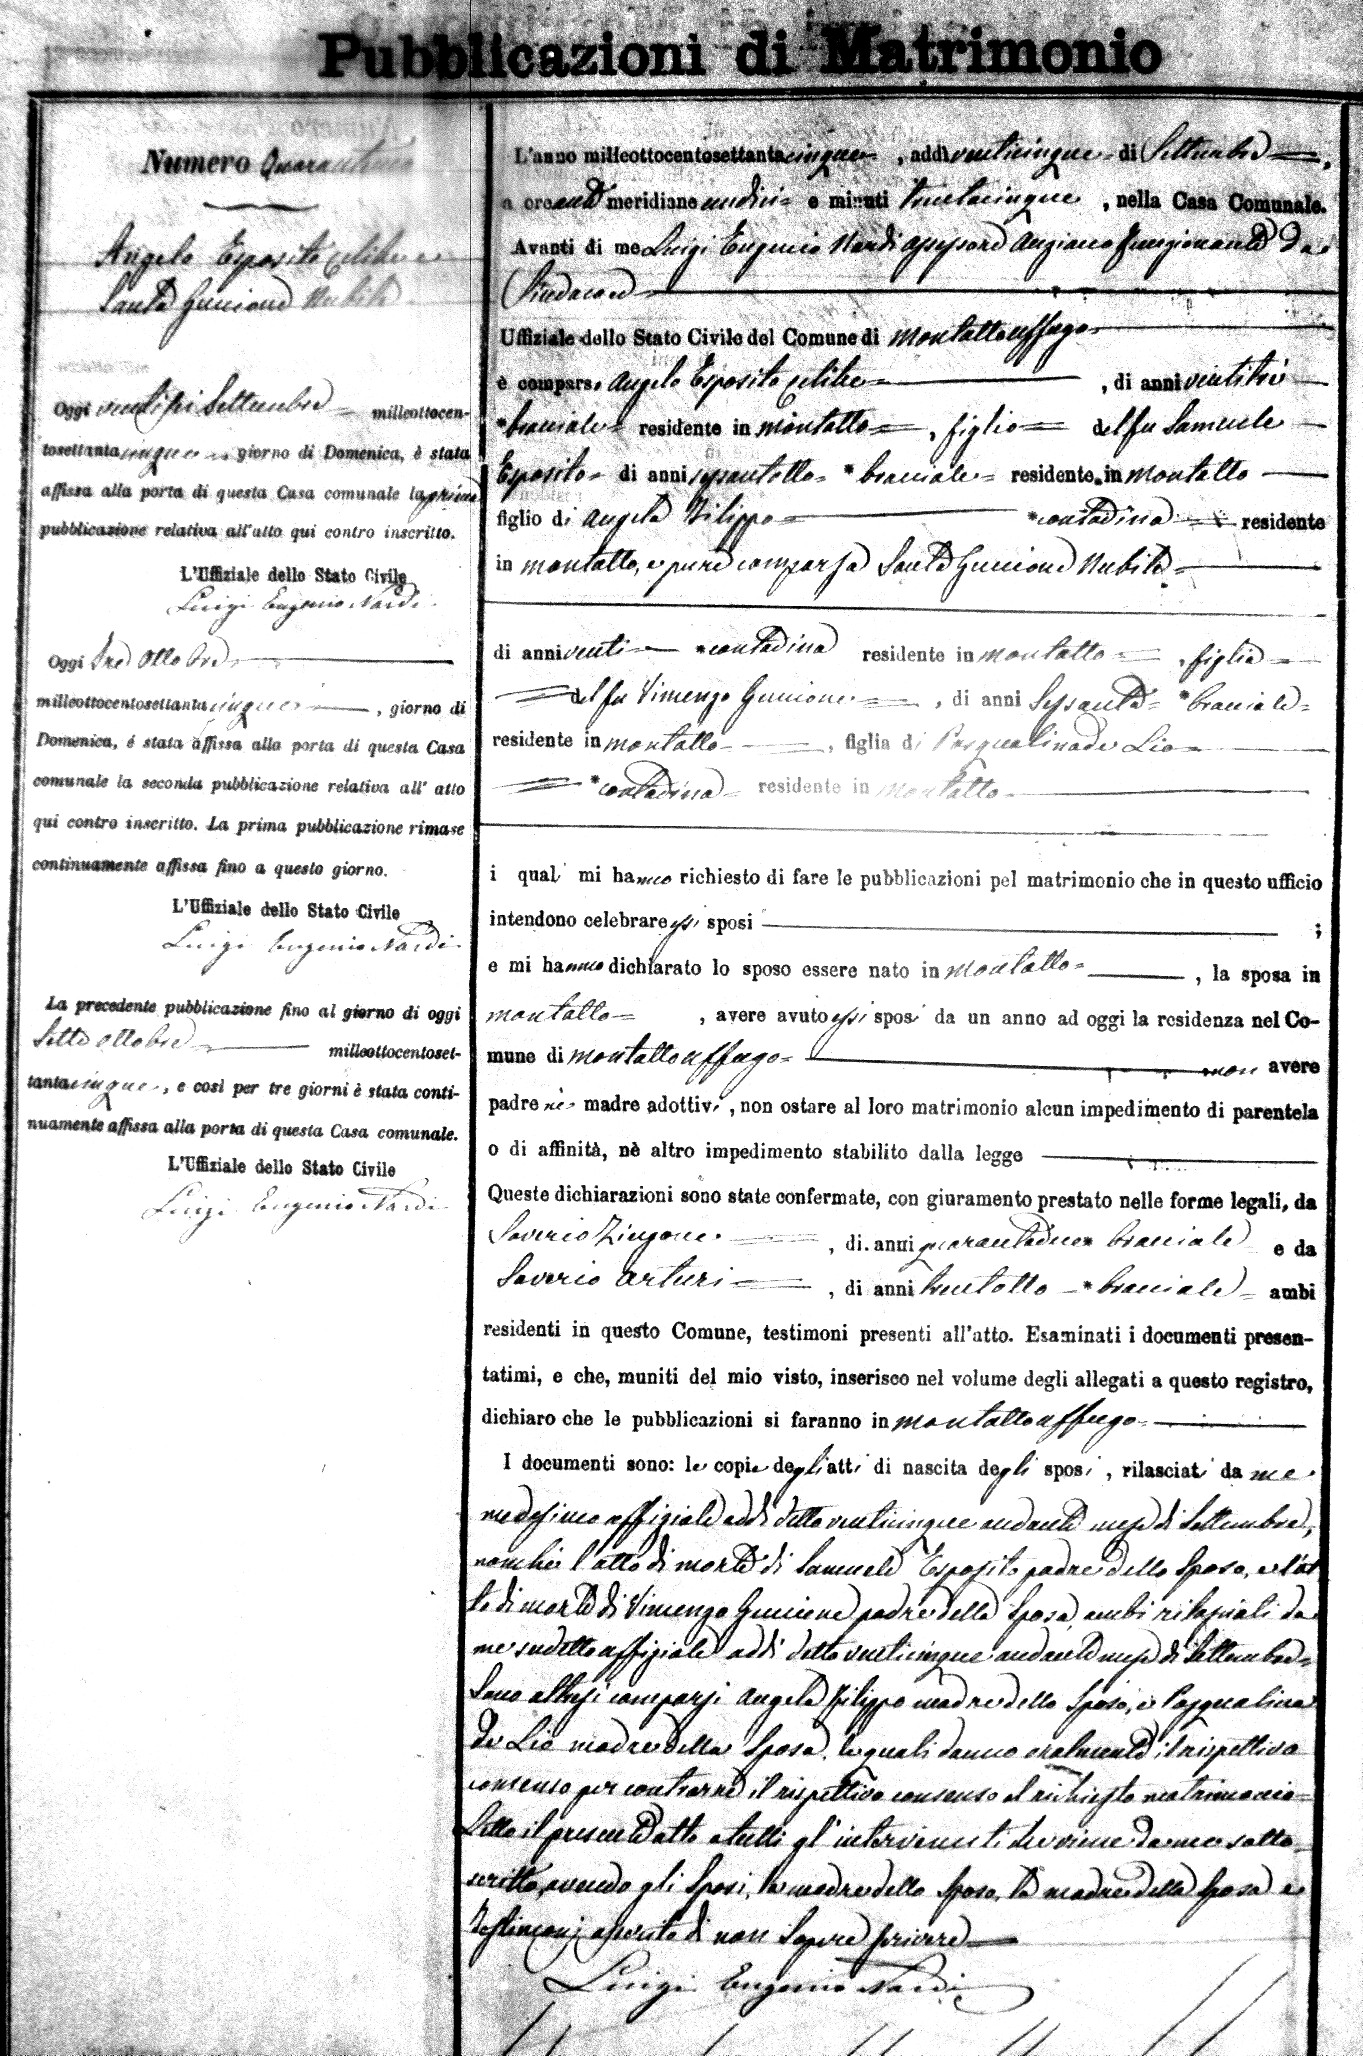 Pubblicazioni di Matrimonio
Numero
Angelo Esposito celibe e
Santa Guccione Nubile
Oggi ventisei Settembre milleottocen-
tosettantacinque giorno di Domenica, è stata
affissa alla porta di questa Casa comunale la prima
pubblicazione relativa all'atto qui contro inscritto.
L'Uffiziale dello Stato Civile
Luigi Eugenio Nardi
Oggi tre Ottobre
milleottocentosettantacinque, giorno di
Domenica, é stata affissa alla porta di questa Casa
comunale la seconda pubblicazione relativa all' atto
qui contro inscritto. La prima pubblicazione rimase
continuamente affissa fino a questo giorno.
L'Uffiziale dello Stato Civile
Luigi Eugenio Nardi
La precedente pubblicazione fino al giorno di oggi
Sette Ottobre milleottocentoset-
tantacinque, e così per tre giorni è stata conti-
nuamente affissa alla porta di questa Casa comunale.
L'Uffiziale dello Stato Civile
Luigi Eugenio Nardi
L'anno milleottocentosettantacinque, addi venticinque di Settembre,
a ore anti meridiane undici e minuti trentacinque, nella Casa Comunale.
Avanti di me Luigi Eugenio Nardi assessore anziano funzionante da
Sindaco
Uffiziale dello Stato Civile del Comune di Montaltouffugo
è comparso Angelo Esposito celibe, di anni ventitrè
bracciale residente in Montalto, figlio del fu Samuele
Esposito di anni sessantotto bracciale residente in Montalto
figlio di Angela Filippo contadina residente
in Montalto, e pure comparsa Santa Guccione Nubile
di anni venti contadina residente in Montalto, figlia
del fu Vincenzo Guccione, di anni Sessanta bracciale
residente in Montalto, figlia di Pasqualina de Lio
contadina residente in Montalto
i quali mi hanno richiesto di fare le pubblicazioni pel matrimonio che in questo ufficio
intendono celebrare essi sposi ;
e mi hanno dichiarato lo sposo essere nato in Montalto, la sposa in
Montalto, avere avuto essi sposi da un anno ad oggi la residenza nel Co-
mune di Montaltouffugo non avere
padre nè madre adottivi, non ostare al loro matrimonio alcun impedimento di parentela
o di affinità, nè altro impedimento stabilito dalla legge
Queste dichiarazioni sono state confermate, con giuramento prestato nelle forme legali, da
Saverio Zingone, di anni quarantadue bracciale e da
Saverio Arturi, di anni trentotto bracciale ambi
residenti in questo Comune, testimoni presenti all'atto. Esaminati i documenti presen-
tatimi, e che, muniti del mio visto, inserisco nel volume degli allegati a questo registro,
dichiaro che le pubblicazioni si faranno in Montaltouffugo
I documenti sono: le copie degli atti di nascita degli sposi, rilasciati da me
medesimo uffiziale addi detto venticinque andante mese di Settembre,
nonchè l'atto di morte di Samuele Esposito padre dello Sposo, e l'at
to di morte di Vincenzo Guccione padre della Sposa, ambi rilasciati da
me sudetto uffiziale addi detto venticinque andante mese di Settembre
Sono altresi comparsi Angela Filippo madre dello Sposo, e Pasqualina
de Lio madre della Sposa, le quali danno oralmente il rispettivo
consenso per contrarre il rispettivo consenso al richiesto matrimonio
Letto il presente atto a tutti gl'intervenuti viene da me sotto
scritto, avendo gli Sposi, la madre dello Sposo, la madre della Sposa e
Testimonj asserito di non sapere scrivere
Luigi Eugenio Nardi